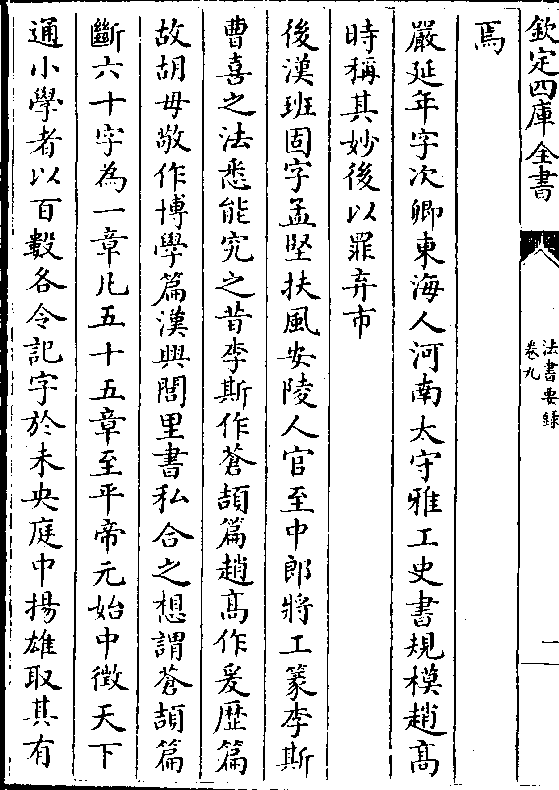 欽定四庫全書
法書要錄
卷九
一
焉
嚴延年字次卿東海人河南太守雅工史書規模趙髙
時稱其妙後以罪弃市
後漢班固字孟堅扶風安陵人官至中郎將工篆李斯
曹喜之法悉能究之昔李斯作蒼頡篇趙髙作爰歴篇
故胡毋敬作博學篇漢興閭里書私合之想謂蒼頡篇
斷六十字為一章凡五十五章至平帝元始中徴天下
通小學者以百數各令記字於未央庭中揚雄取其有